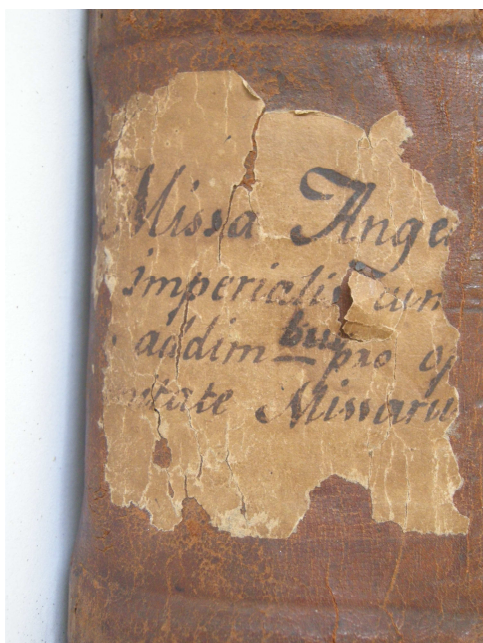 Missa Ange
imperialis cum
addim bus pro op
itate Missaru